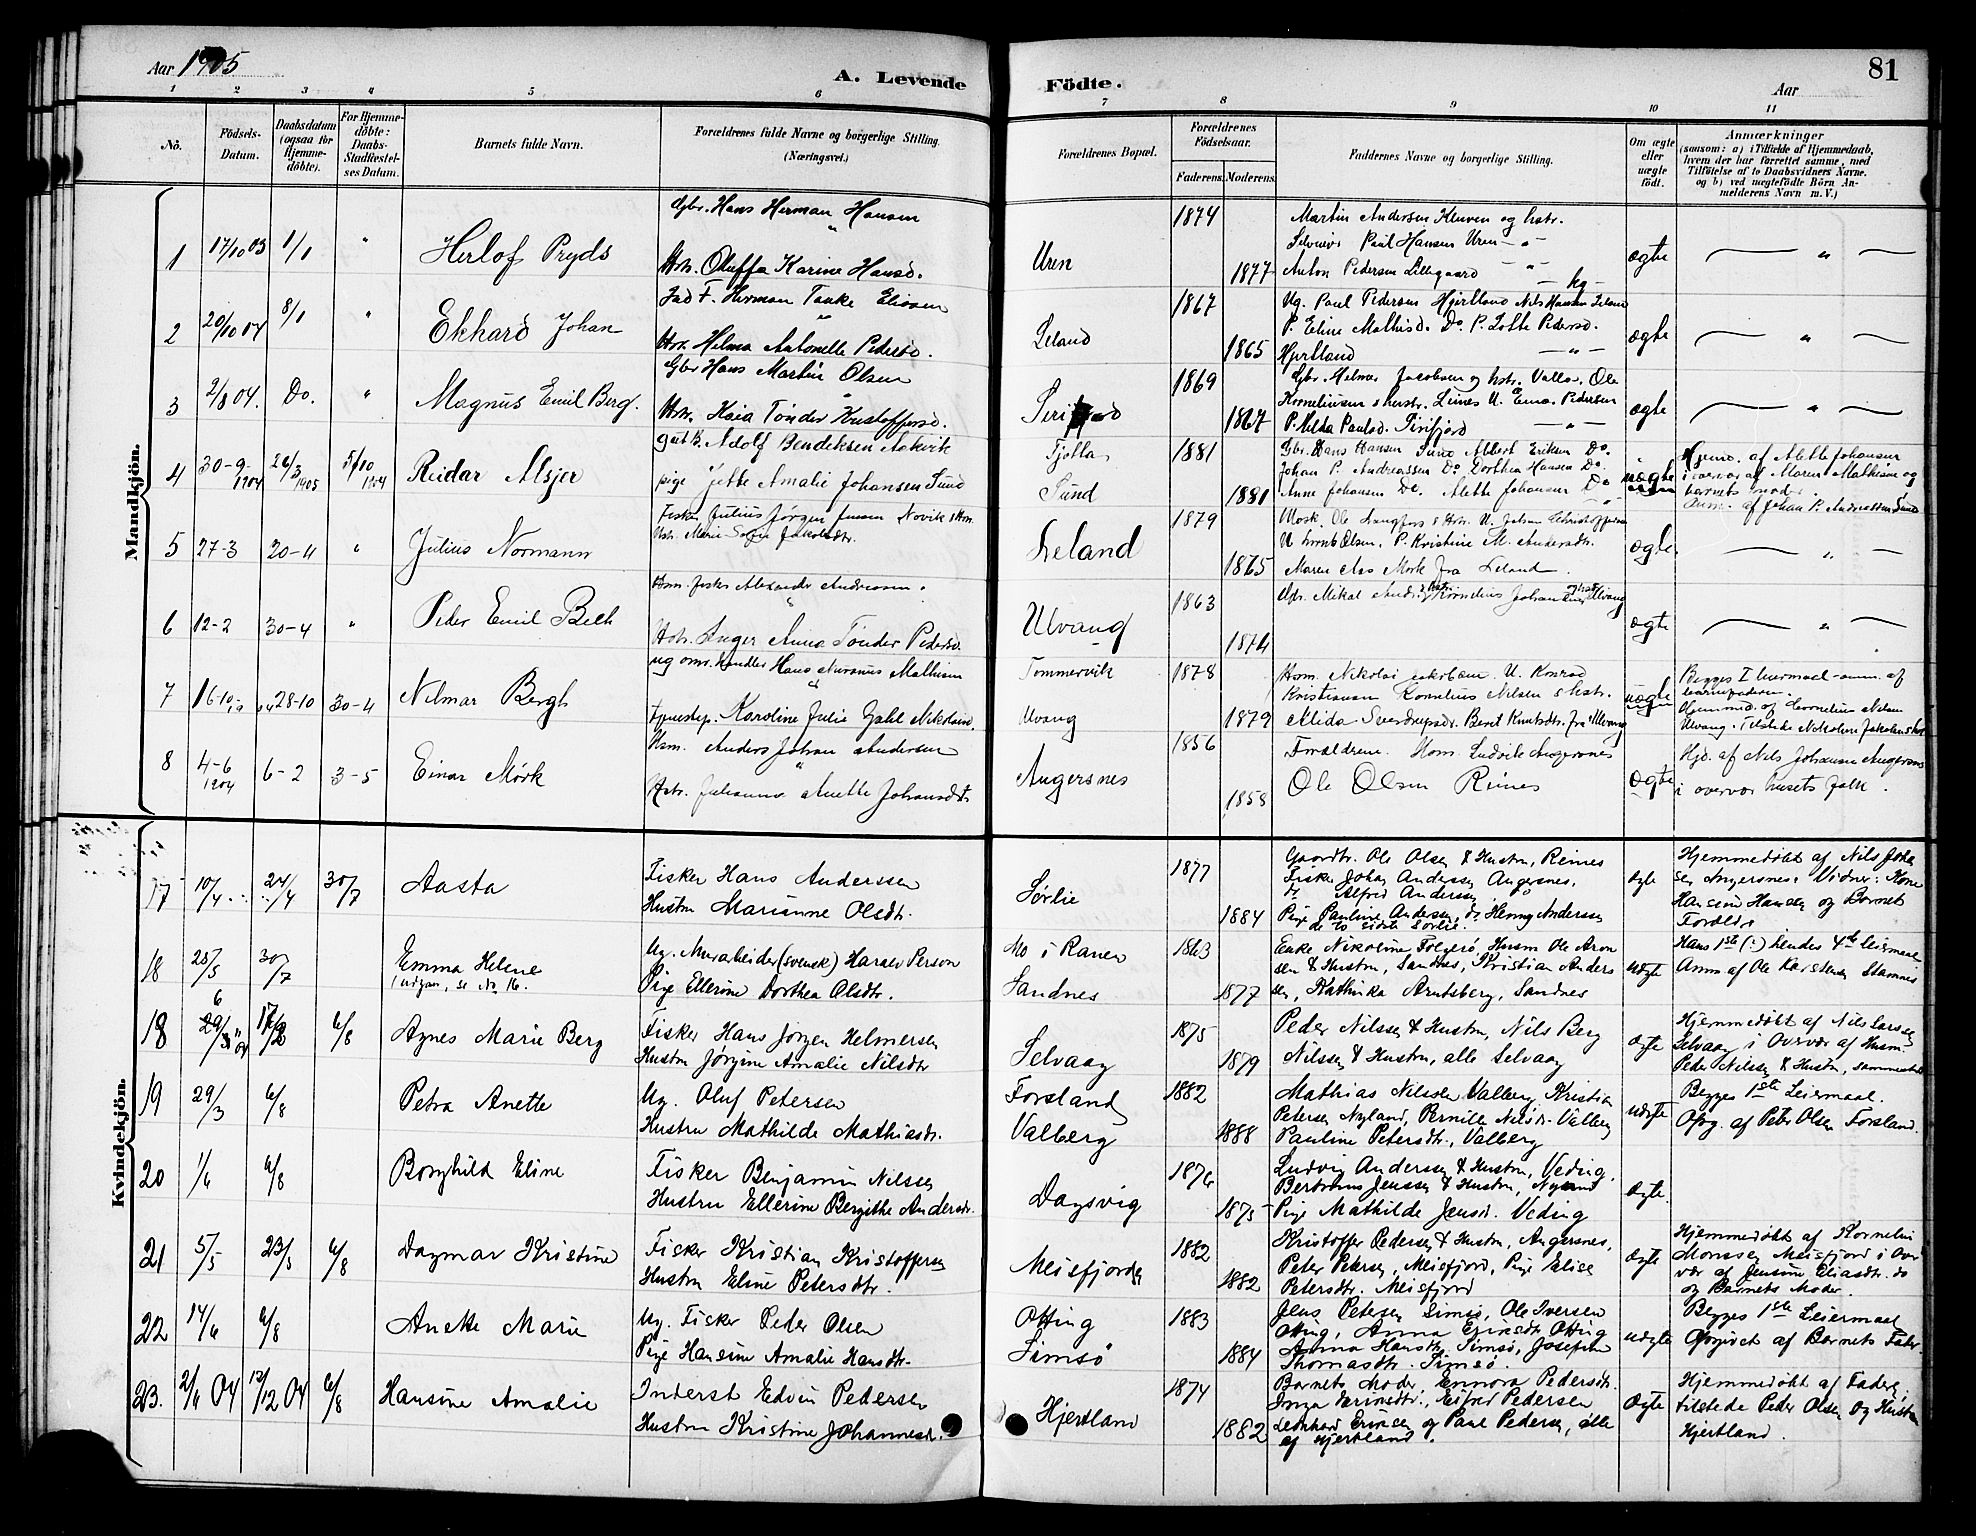 Aar 1905
A. Levende Födte.
Aar
81
1 2 3 4 5 6 7 8 9 10 11
Nö.
Födsels-Datum.
Daabsdatum (ogsaa for Hjemme-döbte).
For Hjemme-döbte: Daabs-Stadfæstel-ses Datum.
Barnets fulde Navn.
Forældrenes fulde Navne og borgerlige Stilling. (Næringsvei.)
Forældrenes Bopæl.
Forældrenes Födselsaar.
Faderens. Moderens.
Faddernes Navne og borgerlige Stilling.
Om ægte eller uægte födt.
Anmærkninger
(saasom: a) i Tilfælde af Hjemmedaab, hvem der har forrettet samme, med Tilföielse af to Daabsvidners Navne. og b) ved uægtefödte Börn Anmelderens Navn m. V.)
Mandkjön.
1 17/10 03 1/1 " Herlof Pryds
Gbr. Hans Herman Hansen
Hstr. Oluffa Karine Hansd.
Uren 1874 1877
Martin Andersen Kluven og hstr.
Paul Hansen Uren
Anton Pedersen Lillegaard
ægte — " —
2 20/10 04 8/1 " Ekhard Johan
Ind. F. Herman Tanke Eliasen
Hstr. Helma Antonette Pedersd.
Leland 1867 1865
Ug. Paul Pedersen Hjertland Nils Hansen Leland
P. Eline Mathisd. Do. P. Lotte Pedersd.
Hjertland — " —
ægte — " —
3 2/8 04. Do. " Magnus Emil Berg.
Gbr Hans Martin Olsen
Hstr. Kaia Tönder Kristoffersd.
1869 1867
Gbr. Helmer Jacobsen og hstr. Valla, Ole
Korneliusen & hstr. Pedersen
P. Alida Paulsd.
ægte — " —
4 30-9-1904 26/3 1905 5/10 1904 Reidar Alsjer
Adolf Bendiksen
pige Jette Amalie Johansen Sund
Tjötta
Sund 1881 1881
Gbr. Hans Hansen Sund Albert Eriksen Do.
Johan P. Andreassen Do. Dorthea Hansen Do.
Anne Johansen Do. Alette Johansen Do
uægte
Hjemd. af Alette Johansen
i overvær af Maren Mathisen og
barnets moder.
Anm. af Johan P. Andreassen Sund
5 27-3 30-4 " Julius Normann
Fisker Julius Jörgen Jensen
Hstr. Marie Sofie Jakobsdtr.
Leland 1879 1865
U. Johan Christoffersen
P. Kristine M. Andersdtr.
Maren Mork fra Leland.
ægte — " —
6 12-2 30-4 " Peder Emil Bech
Hsm. fisker Alexander Andreassen.
Hstr. Inger Anna Tönder Pedersd.
Ulvang 1863 1874
Gbr. Mikal Kornelius Johansen Ulvang
ægte — " —
7 16-10 28-10 30-4 Nilmar Bergh
ug. Hans Mathisen
Karoline Julie Nikolaisd.
Tommervik
Ulvang 1878 1879
Hsm. Nikolai Jakobsen. U. Konrad
Kristiansen Kornelius Nilsen & hstr.
Alida Berit Knutsdtr. fra Ulvang
uægte
Begges I leiermaal - anm. af
barnefaderen.
Hjemmd. af Cornelius Nilsen
Ulvang.
8 4-6 1904 6-2 3-5 Einar Mörk
Hsm. Anders Johan Andersen
Hstr. Julianne Anette Johansdtr
Angersnes 1856 1858
Forældrene. Hsm. Ludvik Angersnes
Ole Olsen Reines
ægte
Hjd. af Nils Johansen Angersnes
i overvær husets folk.
Kvindekjön.
17 10/4 24/4 30/7 Aasta
Fisker Hans Anderssen
Hustru Marianne Olsdtr.
Sörlie 1877 1884
Gaardbr. Ole Olsen & Hustru, Reines
Fisker Johan Anderssen Angersnes,
do Alfred Anderssen
Pige Pauline Anderssen, do Henny Anderssen
de to sidste Sörlie.
ægte
Hjemmedöbt af Nils Johan
sen Angersnes. Vidner: Kone
Hansine Hansen og Barnets
Forældre
18 25/5 30/7 Emma Helene
(udgaar, se No 16.
Ug. Murarbeider (svensk) Harald Person
Pige Ellerine Dorthea Olsdtr.
Mo i Ranen
Sandnes 1863 1877
Enke Nikoline Folgerö, Husm Ole Aron
sen & Hustru, Sandnes, Kristian Anders
sen, Kathinka Arntsberg, Sandnes
uægte
Hans 1ste (:) hendes 4de Leiermaal
Anm af Ole Karstensen Stamnes
18 29/3 04 6/8 Agnes Marie Berg
Fisker Hans Jörgen Helmersen
Hustru Jörgine Amalie Nilsdtr
Selvaag 1875 1879
Peder Nilssen & Hustru, Nils Berg
Nilssen & Hustru, alle Selvaag
ægte
Hjemmedöbt af Nils Larssen
Selvaag i Overvær af Husm.
Peder Nilssen & Hustru, sammesteds
19 29/3 6/8 Petra Anette
Ug. Oluf Petersen
Hustru Mathilde Mathiasdtr.
Forsland
Valberg 1882 1888
Mathias Nilssen Valberg, Kristian
Petersen Nyland, Pernille Nilsdtr. Valberg
Pauline Petersdtr., Valberg
uægte
Begges 1ste Leiermaal.
Opg. af Peter Olsen Forsland.
20 1/6 6/8 Borghild Eline
Fisker Benjamin Nilssen
Hustru Ellerine Bergithe Andersdtr.
Dagsvig 1876 1875
Ludvig Anderssen & Hustru, Veding,
Bertreus Jenssen & Hustru, Nyland
Pige Mathilde Jensdtr. Veding
ægte.
21 5/5 23/5 6/8 Dagmar Kristine
Fisker Kristian Kristoffersen
Hustru Eline Petersdtr.
Meisfjorden 1882 1882
Kristoffer Pedersen & Hustru, Angersnes,
Peter Petersen, Meisfjord, Pige Elise
Petersdtr. Meisfjord
ægte
Hjemmedöbt af Korneliu
Monssen Meisfjord i Over
vær af Jensine Eliasdtr. do
og Barnets Moder.
22 14/6 6/8 Anette Marie
Ug. Fisker Peder Olsen
Pige Hansine Amalie Hansdtr.
Otting
Simsö 1883 1884
Jens Petersen Simsö, Ole Iversen
Otting, Anna Eriksdtr. Otting
Anna Hansdtr. Simsö, Josefine
Thomasdtr. Simsö.
uægte
Begges 1ste Leiermaal
Opgivet af Barnets Fader.
23. 2/6 04 12/12 04 6/8 Hansine Amalie
Inderst Edvin Pedersen
Hustru Kristine Johannesdtr.
Hjertland 1874 1882
Barnets Moder, Ennora Pedersdtr.
Inga Eriksdtr., Elfred Pedersen
Leonhard Eriksen og Paul Pedersen, alle
af Hjertland.
ægte
Hjemmedöbt af Faderen,
tilstede Peder Olsen og Hustru
Hjertland.